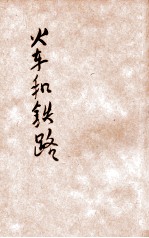 火车和铁路